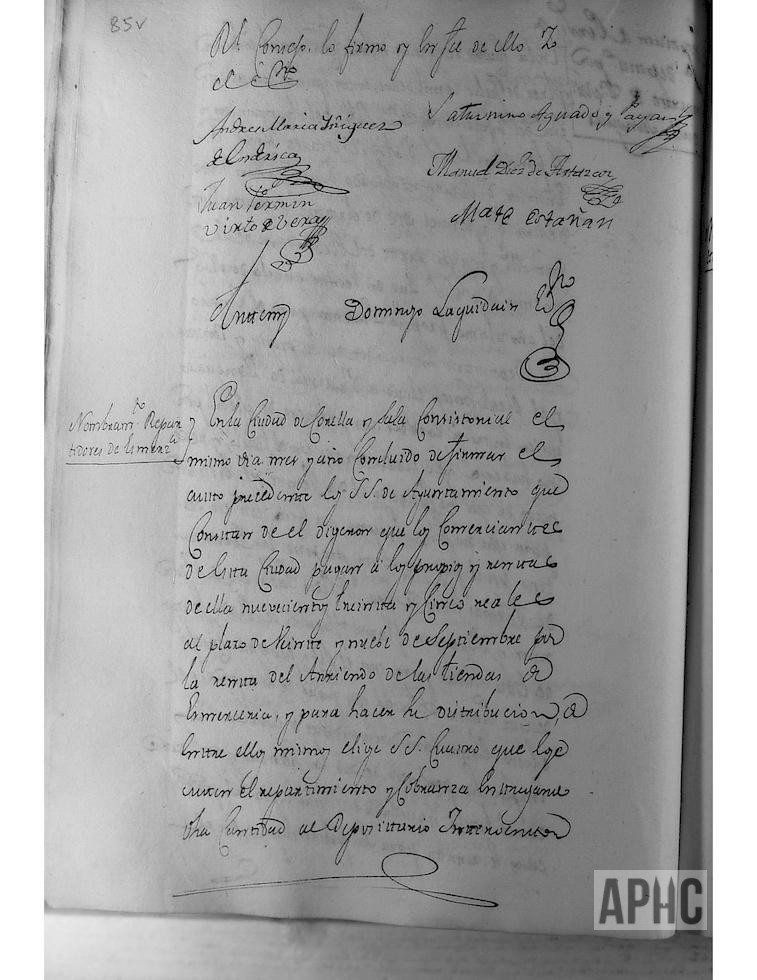 85v
Rl. Consejo lo firmo y en fee de ello Yo
el Ssno
Andres Maria Yñiguez
Saturnino Aguado y Payan
de
Manuel Diez de
Juan Fermin
Virto de Vera
Mate Estañan
Antemi Domingo Laquidain Esno
Nombramto Repar
tidores de
En la Ciudad de Corella y Sala Consistorial el
mismo dia mes y año Concluido de firmar el
auto precedente los SS. de Ayuntamiento que
Constan de el digeron que los Comerciantes
de esta Ciudad pagan a los propios y rentas
de ella nuevecientos treinta y Cinco reales
al plazo de Veinte y nuebe de Septiembre por
la renta del Arriendo de las tiendas de
y para hacer la distribucion
entre ellos mismos elige SS. Cuatro que
cuten el repartimiento y Cobranza entregando
dha Cantidad al Depositario
APHC